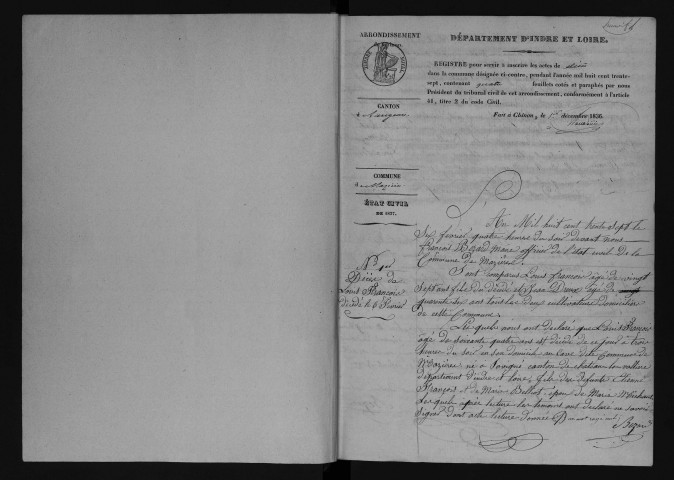 ARRONDISSEMENT
DÉPARTEMENT D'INDRE ET LOIRE.
REGISTRE pour servir à inscrire les actes de décès
dans la commune désignée ci-contre, pendant l'année mil huit cent trente-
sept, contenant quatre feuillets cotés et paraphés par nous
Président du tribunal civil de cet arrondissement, conformément à l'article
41, titre 2 du code Civil.
Fait à Chinon, le 1er décembre 1836.
CANTON
COMMUNE
ÉTAT CIVIL
DE 1837.
N° 1er
Décès de
Louis François
décédé le 6 Février
An Mil huit cent trente sept le
Six février quatre heures du soir devant nous
François Maire officier de l'état civil de la
Commune de Mazières
Sont comparus Louis François âgé de vingt
Sept ans fils du décédé et Jean Dreux âgé de
quarante six ans tous les deux cultivateurs domiciliés
de cette Commune
Les quels nous ont déclaré que Louis François
âgé de soixante quatre ans est décédé de ce jour à trois
heures du soir en son domicile en cette Commune de
Mazières né à canton de château la vallière
département d'indre et loire, fils des defunts
François et de Marie époux de Marie
Les quels après lecture les témoins ont déclaré ne savoir
Signer dont acte lecture donnée